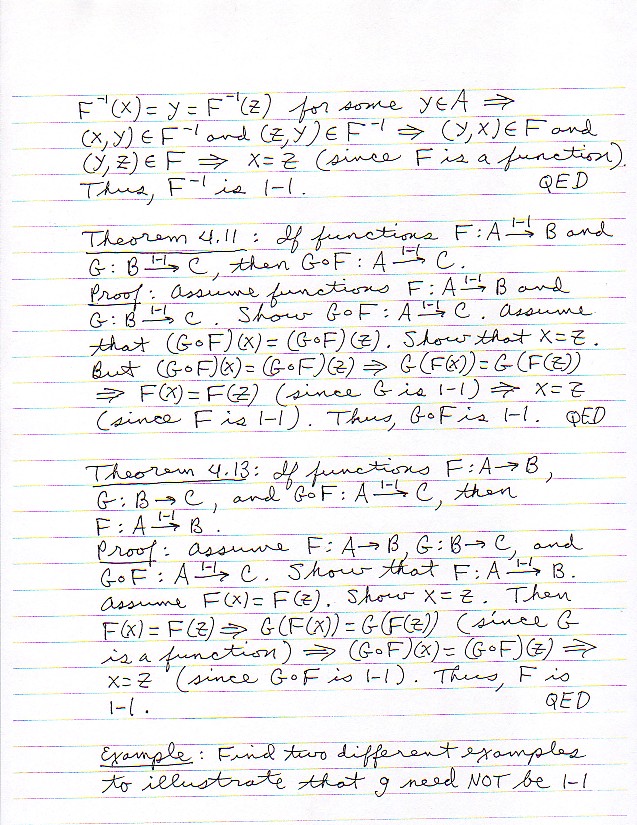 F⁻¹(x) = y = F⁻¹(z) for some y∈A ⇒
(x,y) ∈ F⁻¹ and (z,y) ∈ F⁻¹ ⇒ (y,x) ∈ F and
(y,z) ∈ F ⇒ x = z (since F is a function).
Thus, F⁻¹ is 1-1. QED
Theorem 4.11: If functions F: A 1-1→ B and
G: B 1-1→ C, then G∘F: A 1-1→ C.
Proof: Assume functions F: A 1-1→ B and
G: B 1-1→ C. Show G∘F: A 1-1→ C. Assume
that (G∘F)(x) = (G∘F)(z). Show that x = z.
But (G∘F)(x) = (G∘F)(z) ⇒ G(F(x)) = G(F(z))
⇒ F(x) = F(z) (since G is 1-1) ⇒ x = z
(since F is 1-1). Thus, G∘F is 1-1. QED
Theorem 4.13: If functions F: A → B,
G: B → C, and G∘F: A 1-1→ C, then
F: A 1-1→ B.
Proof: Assume F: A → B, G: B → C, and
G∘F: A 1-1→ C. Show that F: A 1-1→ B.
Assume F(x) = F(z). Show x = z. Then
F(x) = F(z) ⇒ G(F(x)) = G(F(z)) (since G
is a function) ⇒ (G∘F)(x) = (G∘F)(z) ⇒
x = z (since G∘F is 1-1). Thus, F is
1-1. QED
Example: Find two different examples
to illustrate that g need NOT be 1-1